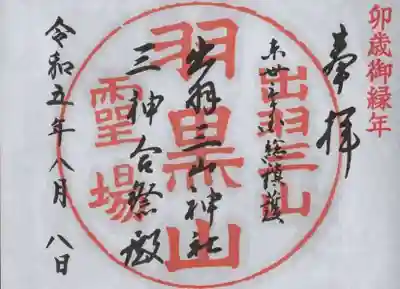 卯歳御縁年
奉拝
出羽三山
末世予必総擁護
羽黒山
出羽三山神社
三神合祭殿
霊場
令和五年八月八日